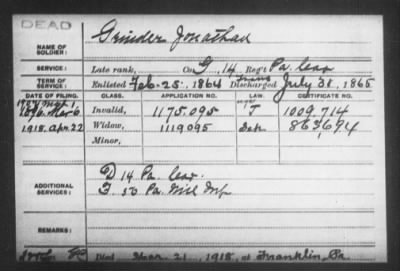 DEAD
Grinder Jonathan
NAME OF SOLDIER:
SERVICE: Late rank, Co. G, 14 Reg't Pa. Cav
TERM OF SERVICE: Enlisted Feb. 25, 1864 Discharged July 31, 1865
DATE OF FILING. CLASS. APPLICATION NO. LAW. CERTIFICATE NO.
Invalid, 1175.095 J 1009.714
1918. Apr. 22 Widow, 1119095 863,694
Minor,
ADDITIONAL SERVICES:
D 14 Pa. Cav.
50 Pa. Mil Inf
REMARKS:
Died Mar. 21, 1918, at Franklin, Pa.